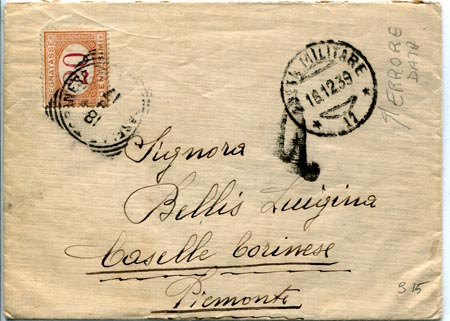 SEGNATASSE
20
CENTESIMI
18
POSTA MILITARE
18.12.39
11
T
ERRORE
DATA
Signora
Bellis Luigina
Caselle Torinese
Piemonte
3.15